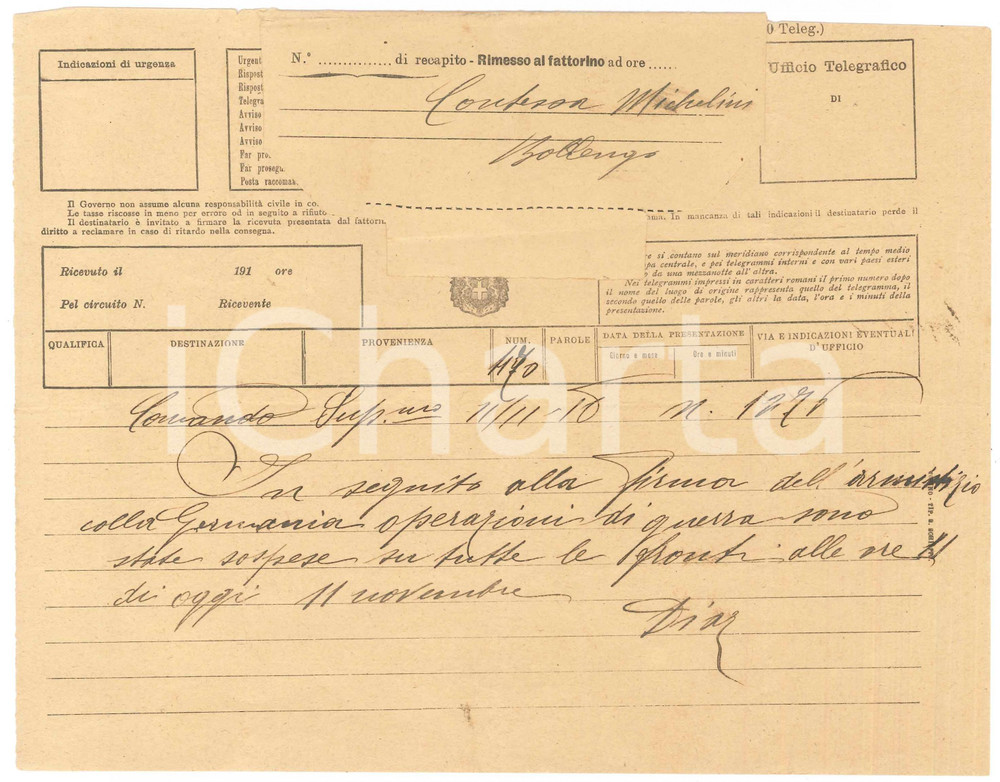 0 Teleg.)
Indicazioni di urgenza
Urgent
Rispost
Rispost
Telegra
Avviso
Avviso
Avviso
Far pro.
Far proseg.
Posta raccoman.
N.° ............... di recapito - Rimesso al fattorino ad ore ......
Contessa Michelini
Bollengo
Ufficio Telegrafico
DI
Il Governo non assume alcuna responsabilità civile in co.
Le tasse riscosse in meno per errore od in seguito a rifiuto
Il destinatario è invitato a firmare la ricevuta presentata dal fattorin
mma. In mancanza di tali indicazioni il destinatario perde il
diritto a reclamare in caso di ritardo nella consegna.
Ricevuto il 191 ore
Pel circuito N. Ricevente
re si contano sul meridiano corrispondente al tempo medio
pa centrale, e pei telegrammi interni e con vari paesi esteri
o da una mezzanotte all'altra.
Nei telegrammi impressi in caratteri romani il primo numero dopo
il nome del luogo di origine rappresenta quello del telegramma, il
secondo quello delle parole, gli altri la data, l'ora e i minuti della
presentazione.
QUALIFICA
DESTINAZIONE
PROVENIENZA
NUM.
PAROLE
DATA DELLA PRESENTAZIONE
Giorno e mese
Ora e minuti
VIA E INDICAZIONI EVENTUALI
D'UFFICIO
1170
Comando Sup.mo 11/11-18 n. 1278
In seguito alla firma dell'armistizio
colla Germania operazioni di guerra sono
state sospese su tutte le fronti alle ore 11
di oggi 11 novembre
Diaz
iCharta